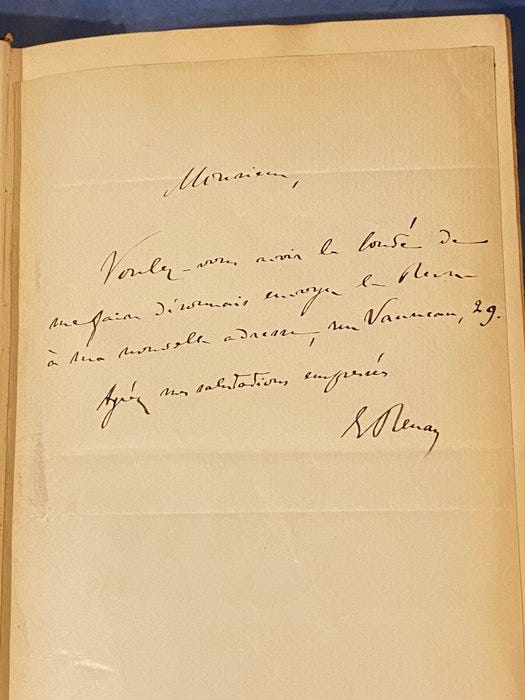 Monsieur,
Voulez-vous avoir la bonté de
me faire désormais envoyer la Revue
à ma nouvelle adresse, rue Vanneau, 29.
Agréez mes salutations empressées
E Renan